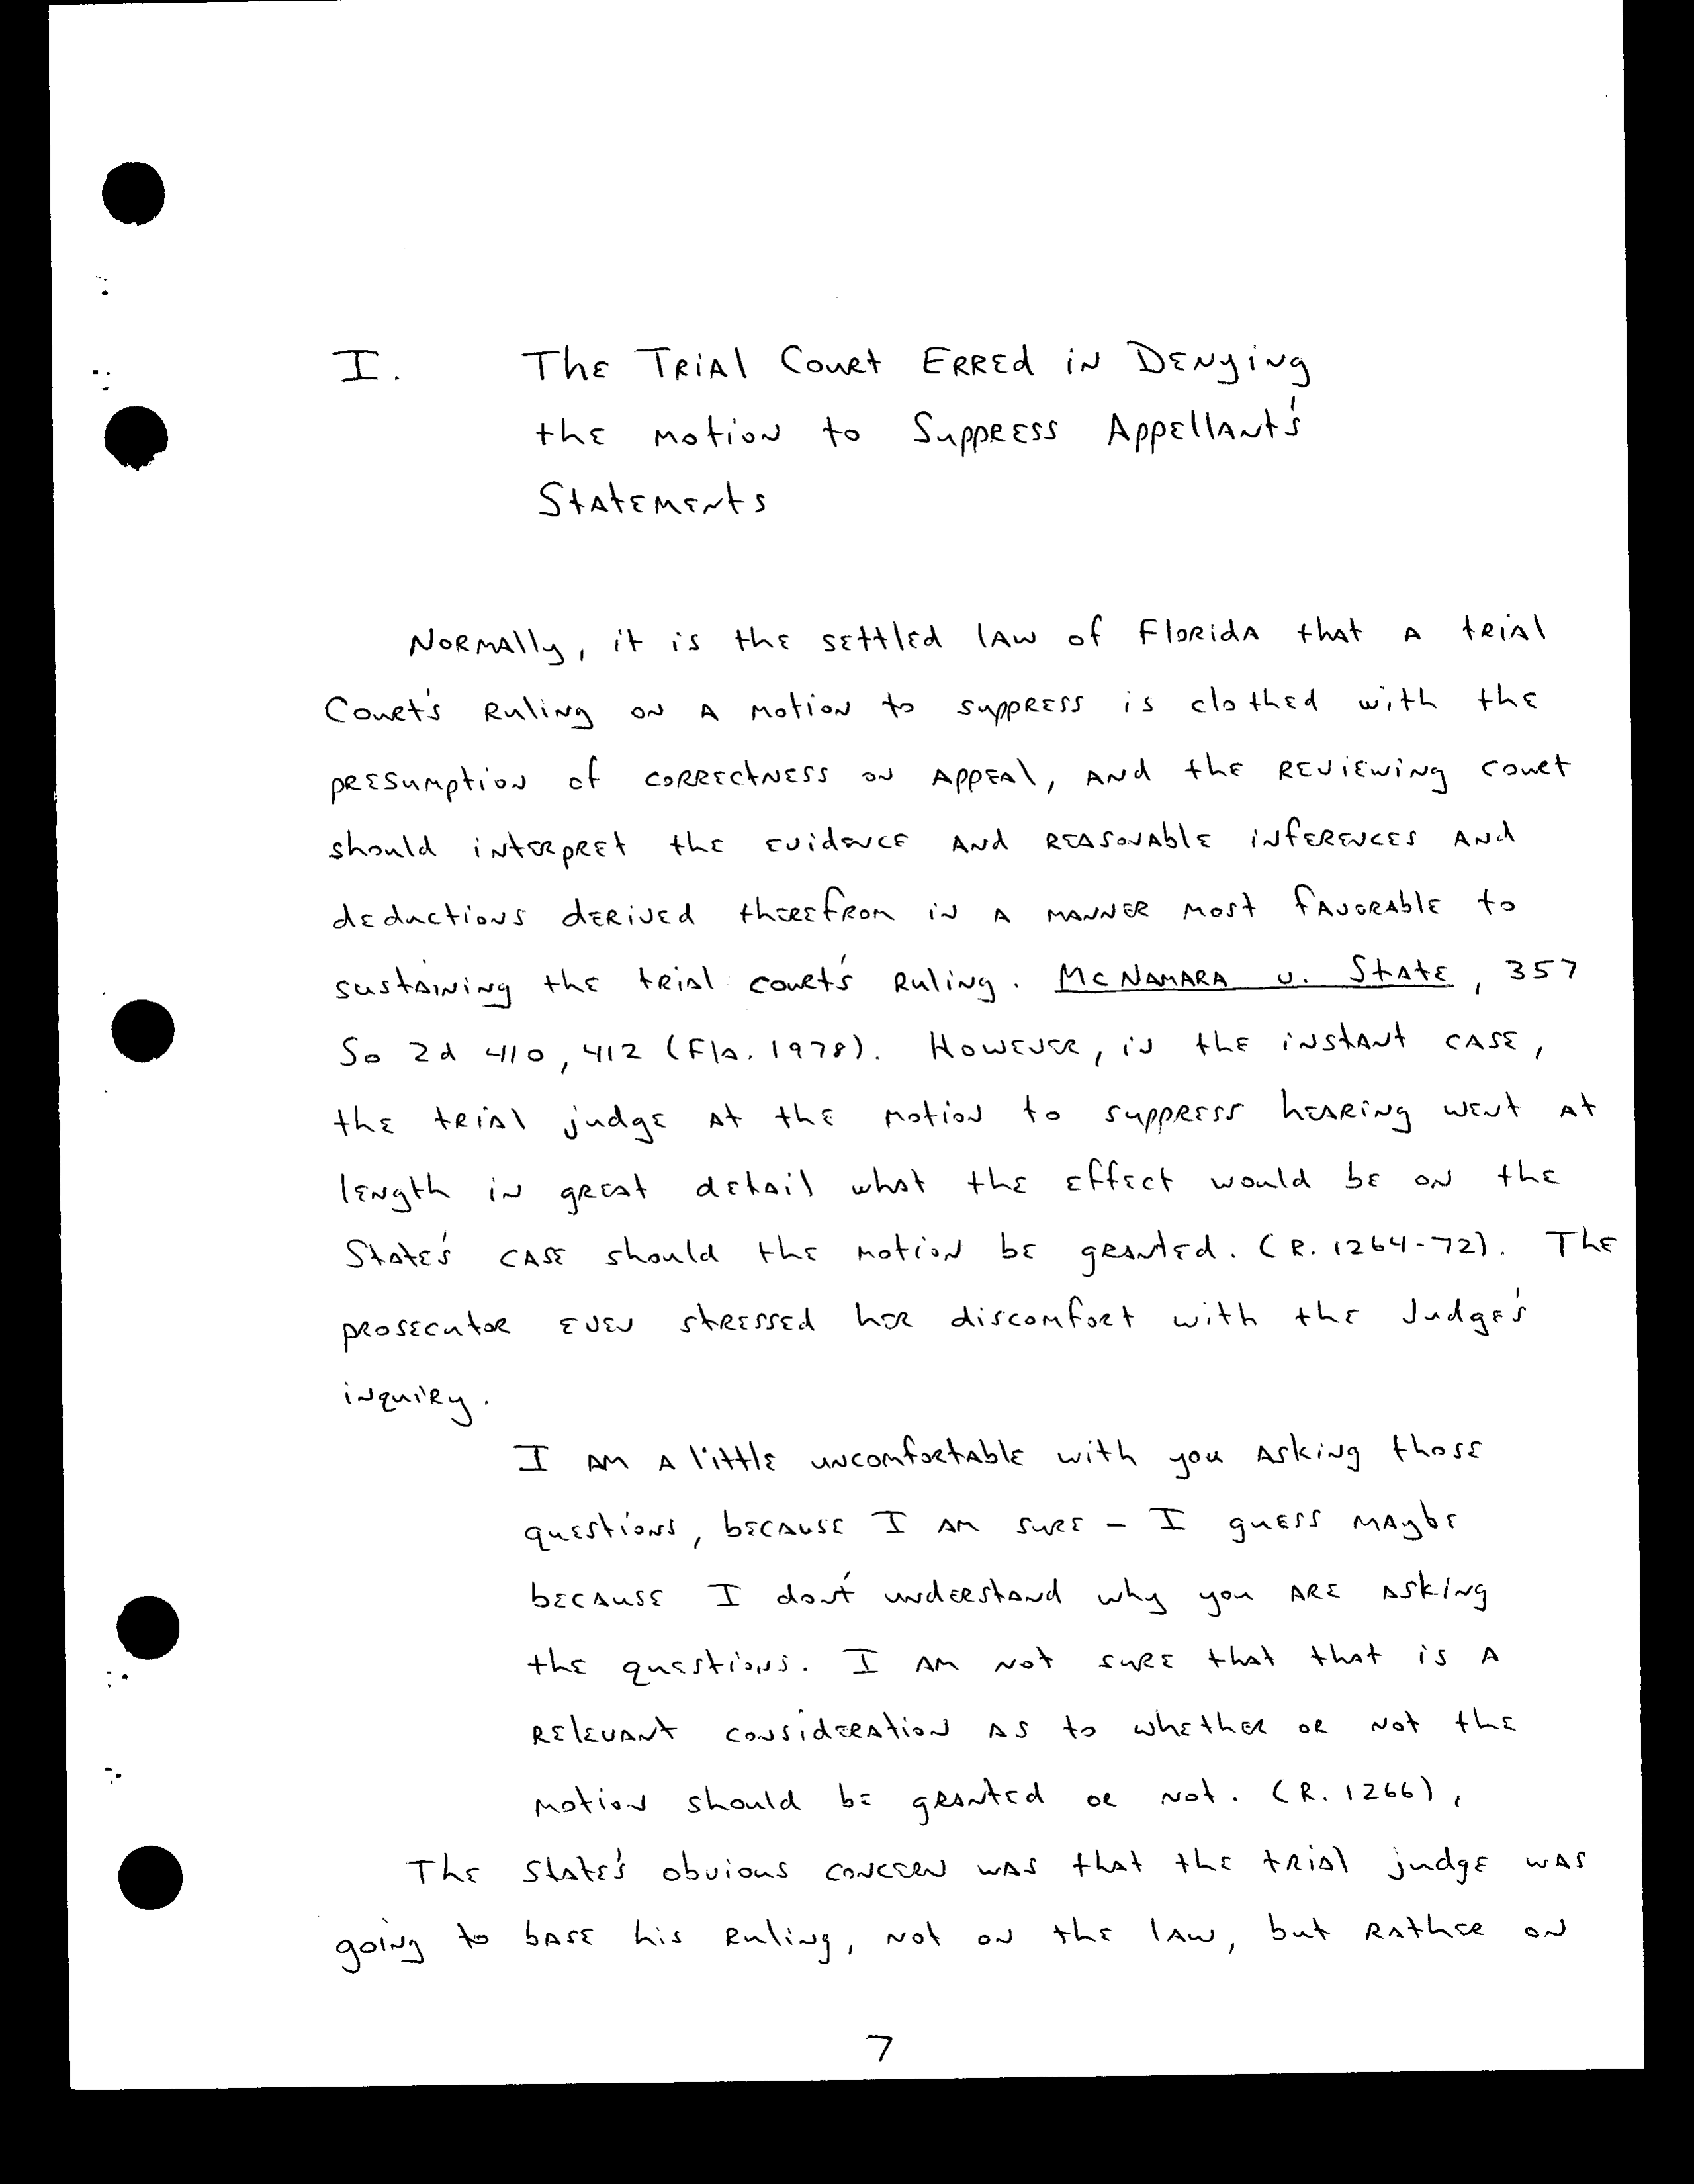 I. The Trial Court Erred in Denying
the motion to Suppress Appellant's
Statements
Normally, it is the settled law of Florida that a trial
Court's ruling on a motion to suppress is clothed with the
presumption of correctness on appeal, and the reviewing court
should interpret the evidence and reasonable inferences and
deductions derived therefrom in a manner most favorable to
sustaining the trial court's ruling. McNamara v. State, 357
So 2d 410, 412 (Fla. 1978). However, in the instant case,
the trial judge at the motion to suppress hearing went at
length in great detail what the effect would be on the
State's case should the motion be granted. (R. 1264-72). The
prosecutor even stressed her discomfort with the Judge's
inquiry.
I am a little uncomfortable with you asking those
questions, because I am sure - I guess maybe
because I don't understand why you are asking
the questions. I am not sure that that is a
relevant consideration as to whether or not the
motion should be granted or not. (R. 1266),
The State's obvious concern was that the trial judge was
going to base his ruling, not on the law, but rather on
7